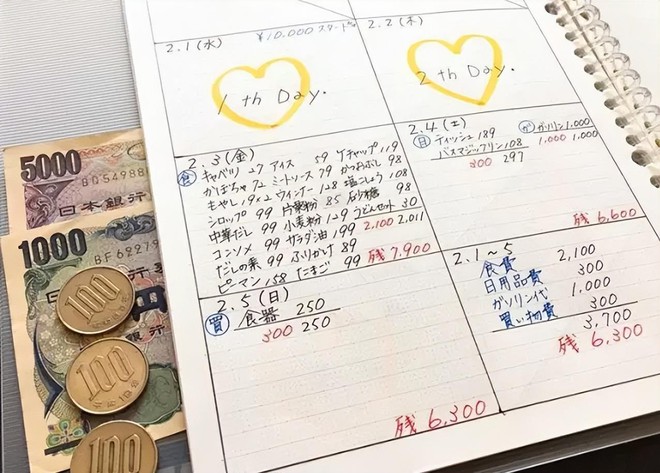 2.1(水)
¥10,000スタート
1 th Day.
2.2(木)
2 th Day.
2.3(金)
食
キャベツ 27 アイス 59 ケチャップ 119
かぼちゃ 72 ミートソース 79 かつおぶし 98
もやし 19×2 ウインナー 128 塩こしょう 108
シロップ 99 片栗粉 85 砂糖 98
中華だし 99 小麦粉 129 うどんセット 30
コンソメ 99 サラダ油 199 2,100 2,011
だしの素 99 ふりかけ 89
ピーマン 158 たまご 99
残 7,900
2.4(土)
日 ティッシュ 189
バスマジックリン 108
300 297
ガ ガソリン 1,000
1,000 1,000
残 6,600
2.5(日)
買 食器 250
300 250
残 6,300
2.1~5
食費 2,100
日用品費 300
ガソリン代 1,000
買い物費 300
3,700
残 6,300
5000
日本銀行
1000
BF
100
100
100